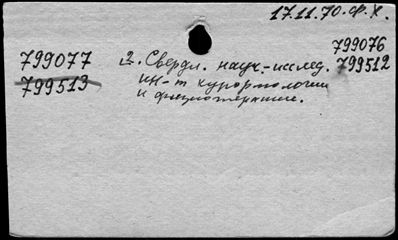 17.11.70. Ф.Х.
799076
799077 2. Свердл. науч.-исслед. 799512
799513 ин-т курортологии
и физиотерапии.